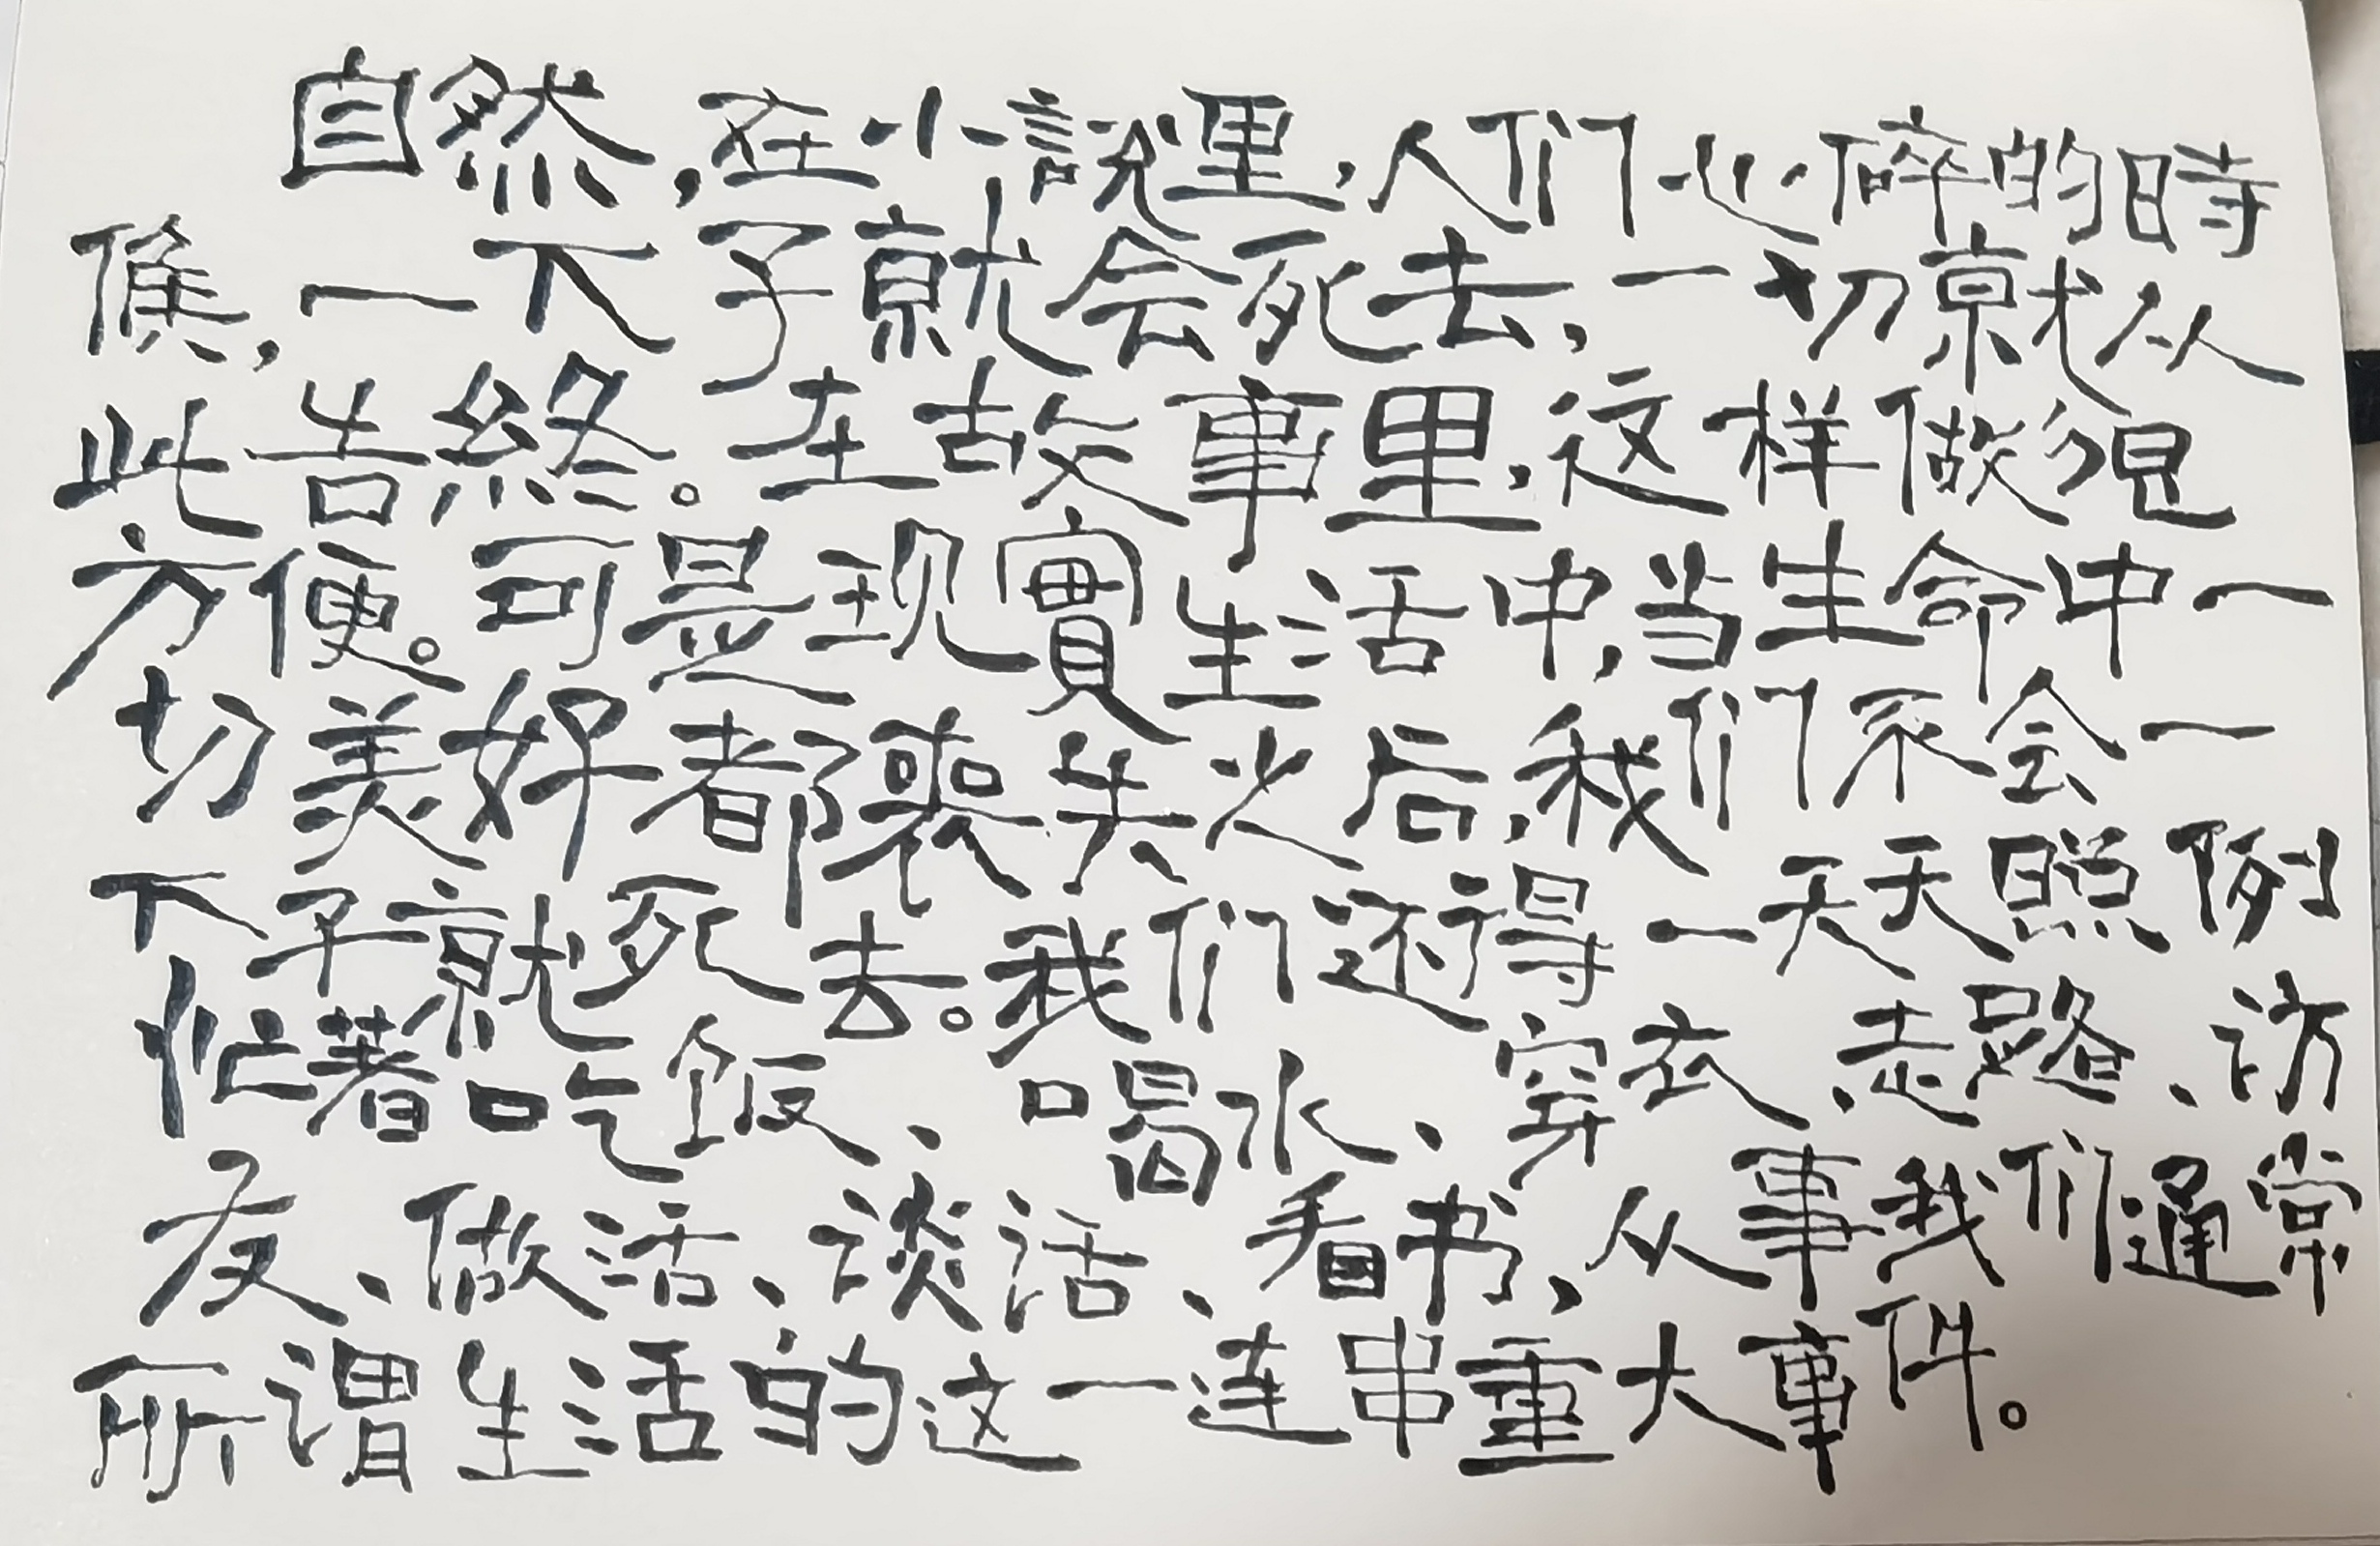 自然,在小說里,人们心碎的時
候,一下子就会死去,一切就从
此告終。在故事里,这样做很
方便。可是现實生活中,当生命中一
切美好都喪失之后,我们不会一
下子就死去。我们还得一天天照例
忙著吃飯、喝水、穿衣、走路、访
友、做活、谈话、看书、从事我们通常
所谓生活的这一连串重大事件。